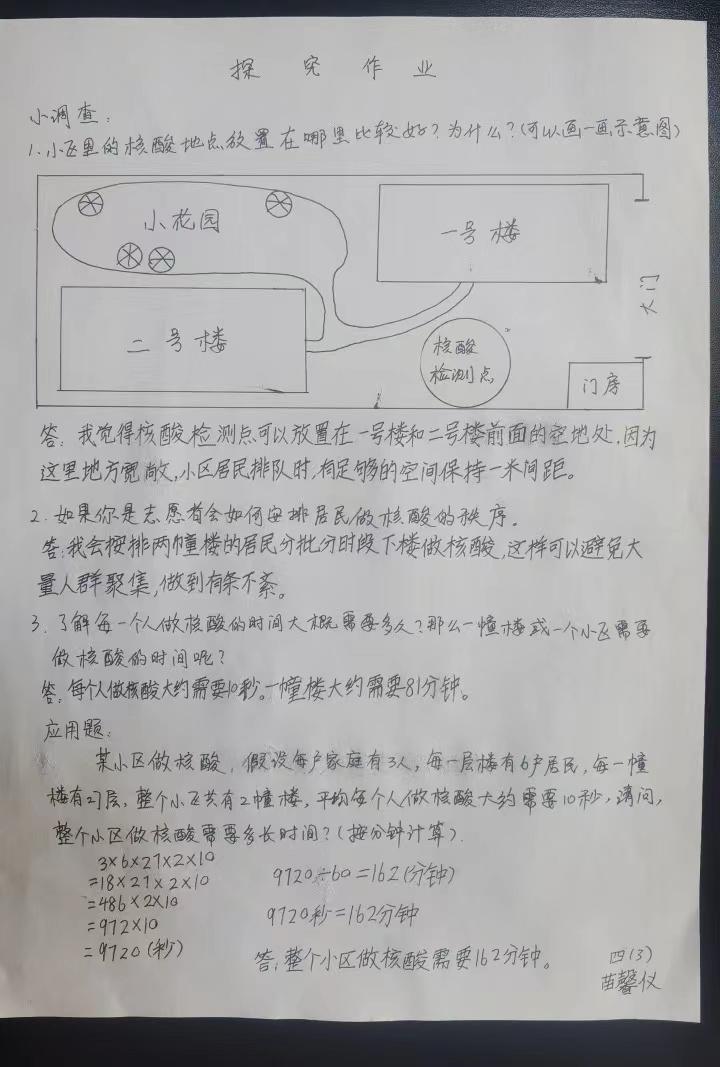 探究作业
小调查:
1.小区里的核酸地点放置在哪里比较好?为什么?(可以画一画示意图)
小花园
一号楼
大门
二号楼
核酸
检测点
门房
答:我觉得核酸检测点可以放置在一号楼和二号楼前面的空地处,因为
这里地方宽敞,小区居民排队时,有足够的空间保持一米间距。
2.如果你是志愿者会如何安排居民做核酸的秩序。
答:我会按排两幢楼的居民分批分时段下楼做核酸,这样可以避免大
量人群聚集,做到有条不紊。
3.了解每一个人做核酸的时间大概需要多久?那么一幢楼或一个小区需要
做核酸的时间呢?
答:每个人做核酸大约需要10秒。一幢楼大约需要81分钟。
应用题:
某小区做核酸,假设每户家庭有3人,每一层楼有6户居民,每一幢
楼有27层,整个小区共有2幢楼,平均每个人做核酸大约需要10秒,请问,
整个小区做核酸需要多长时间?(按分钟计算).
3×6×27×2×10
=18×27×2×10
=486×2×10
=972×10
=9720(秒)
9720÷60=162(分钟)
9720秒=162分钟
答:整个小区做核酸需要162分钟。
四(3)
苗馨仪